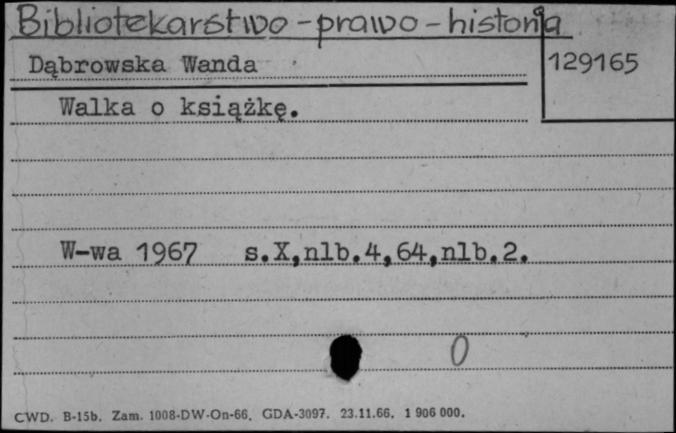 Bibliotekarstwo - prawo - historia
Dąbrowska Wanda
129165
Walka o książkę.
W-wa 1967 s.X,nlb.4,64,nlb.2.
0
CWD. B-15b. Zam. 1008-DW-On-66. GDA-3097. 23.11.66. 1 906 000.